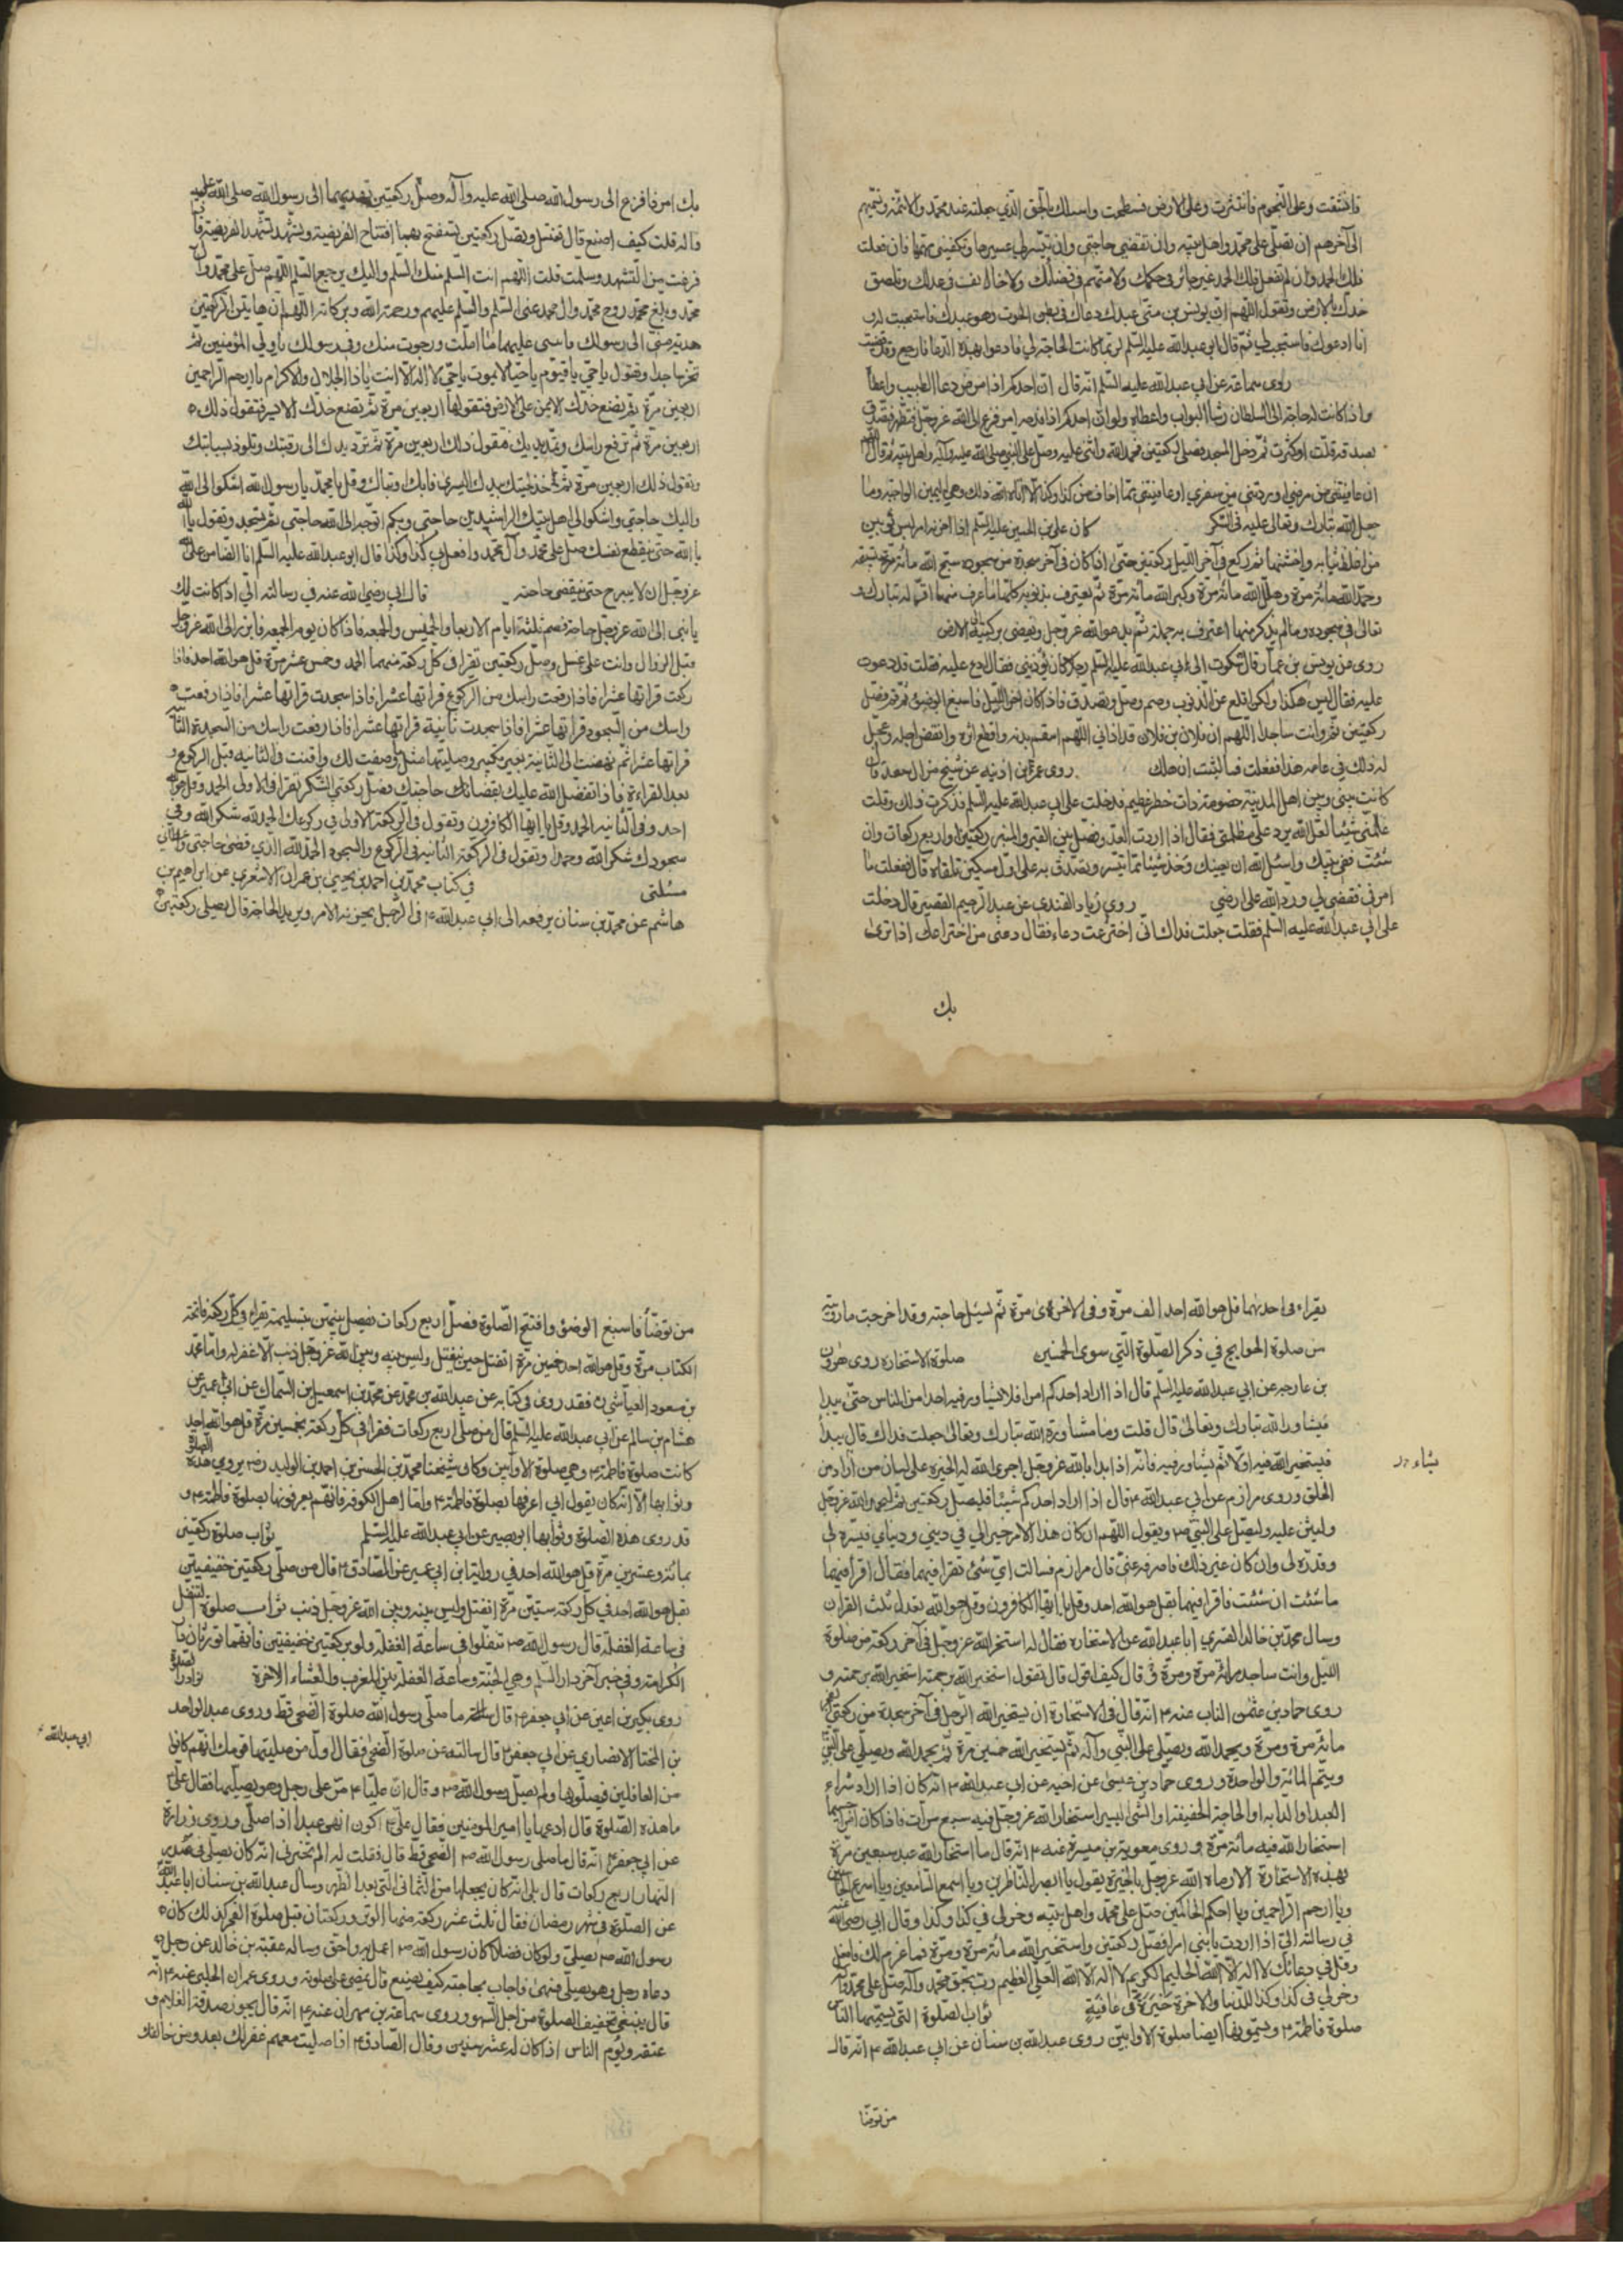 فانشقت وعلى النجوم فانتثرت وعلى الارض فسطحت واسالك بالحق الذي جعلته عند محمد والائمة وتسميهم
الى آخرهم ان تصلي على محمد واهل بيته وان تقضي حاجتي وان تيسر لي عسيرها وتكفيني مهمها فان فعلت
فلك الحمد وان لم تفعل فلك الحمد غير جائر في حكمك ولا متهم في قضائك ولا حائف في عدلك وتلصق
خدك بالارض وتقول اللهم ان يونس بن متى عبدك دعاك في بطن الحوت وهو عبدك فاستجبت له و
انا ادعوك فاستجب لي ثم قال ابي عبد الله عليه السلم لربما كانت الحاجة لي فادعوا بهذه الدعا فارجع وقد قضيت
روى سماعة عن ابي عبد الله عليه السلم انه قال ان احدكم اذا مرض دعا الطبيب واعطا
واذا كانت له حاجة الى السلطان رشا البواب واعطاه ولو ان احدكم اذا فدحه امر فزع الى الله عز وجل فتطهر فتصدق
بصدقة قلت او كثرت ثم دخل المسجد فصلى ركعتين فحمد الله واثنى عليه وصلى على النبي صلى الله عليه وآله واهل بيته ثم قال اللهم
ان عافيتني من مرضي او رددتني من سفري او عافيتني مما اخاف من كذا وكذا الا آتاه الله ذلك وهي اليمين الواجبة وما
جعل الله تبارك وتعالى عليه في الشكر كان علي بن الحسين عليه السلم اذا احزنه امر لبس ثوبين
من اغلظ ثيابه واخشنها ثم ركع في آخر الليل ركعتين حتى اذا كان في آخر سجدة من سجوده سبح الله مائة تسبيحة
وحمد الله مائة مرة وهلل الله مائة مرة وكبر الله مائة مرة ثم يعترف بذنوبه كلها ما عرف منها اقر له تبارك و
تعالى في سجوده وما لم يذكر منها اعترف به جملة ثم يدعو الله عز وجل ويفضي بركبتيه الى الارض
روى عن يونس بن عمار قال شكوت الى ابي عبد الله عليه السلم رجلا كان يؤذيني فقال ادع عليه فقلت قد دعوت
عليه فقال ليس هكذا ولكن اقلع عن الذنوب وصم وصل وتصدق فاذا كان آخر الليل فاسبغ الوضوء ثم قم فصل
ركعتين ثم قل وانت ساجد اللهم ان فلان بن فلان قد اذاني اللهم اسقم بدنه واقطع اثره وانقص اجله وعجل
له ذلك في عامه هذا ففعلت فما لبثت ان هلك روى عمر بن اذينة عن شيخ من ال سعد قال
كانت بيني وبين اهل المدينة خصومة ذات خطر عظيم فدخلت على ابي عبد الله عليه السلم فذكرت ذلك وقلت
علمني شيئا لعل الله يرد علي مظلمتي فقال اذا اردت العدو فصل بين القبر والمنبر ركعتين او اربع ركعات وان
شئت ففي بيتك واسئل الله ان يعينك وخذ شيئا مما تيسر وتصدق به على اول مسكين تلقاه قال ففعلت ما
امرني فقضى لي ورد الله علي ارضي روى زياد القندي عن عبد الرحيم القصير قال دخلت
على ابي عبد الله عليه السلم فقلت جعلت فداك اني اخترعت دعاء فقال دعني من اختراعك اذا نزل
بك
بك امر فافزع الى رسول الله صلى الله عليه وآله وصل ركعتين تهديهما الى رسول الله صلى الله عليه
وآله قلت كيف اصنع قال تغتسل وتصلي ركعتين تستفتح بهما افتتاح الفريضة وتشهد تشهد الفريضة فاذا
فرغت من التشهد وسلمت قلت اللهم انت السلم منك السلم واليك يرجع السلم اللهم صل على محمد وآل
محمد وبلغ محمد روح محمد وال محمد عني السلم والسلم عليهم ورحمة الله وبركاته اللهم ان هاتين الركعتين
هدية مني الى رسولك فاثبني عليهما ما املت ورجوت منك وفي رسولك يا ولي المؤمنين ثم
تخر ساجدا وتقول يا حي يا قيوم يا حيا لا يموت يا حي لا اله الا انت يا ذا الجلال والاكرام يا ارحم الراحمين
اربعين مرة ثم تضع خدك الايمن على الارض فتقولها اربعين مرة ثم تضع خدك الايسر فتقول ذلك
اربعين مرة ثم ترفع راسك وتمد يديك فتقول ذلك اربعين مرة ثم ترد يدك الى رقبتك وتلوذ بسبابتك
وتقول ذلك اربعين مرة ثم خذ لحيتك بيدك اليسرى فابك او تباك وقل يا محمد يا رسول الله اشكو الى الله
واليك حاجتي واشكو الى اهل بيتك الراشدين حاجتي وبكم اتوجه الى الله حاجتي ثم تسجد وتقول يا الله
يا الله حتى ينقطع نفسك صل على محمد وآل محمد وافعل بي كذا وكذا قال ابو عبد الله عليه السلم انا الضامن على الله
عز وجل ان لا يبرح حتى تقضى حاجته قال ابي رضي الله عنه في رسالته الي اذا كانت لك
يا بني الى الله عز وجل حاجة فصم ثلثة ايام الاربعا والخميس والجمعه فاذا كان يوم الجمعه فابرز الى الله عز وجل
قبل الزوال وانت على غسل وصل ركعتين تقرا في كل ركعة منهما الحمد وخمس عشر مرة قل هو الله احد فاذا
ركعت قراتها عشرا فاذا رفعت راسك من الركوع قراتها عشرا فاذا سجدت قراتها عشرا فاذا رفعت
راسك من السجود قراتها عشرا فاذا سجدت ثانية قراتها عشرا فاذا رفعت راسك من السجدة الثانية
قراتها عشرا ثم نهضت الى الثانية بغير تكبير وصليتها مثل ما وصفت لك واقنت في الثانيه قبل الركوع و
بعد القراءة فاذا تفضل الله عليك بقضاء حاجتك فصل ركعتي الشكر تقرا في الاولى الحمد وقل هو الله
احد وفي الثانيه الحمد وقل يا ايها الكافرون وتقول في الركعة الاولى في ركوعك الحمد لله شكرا لله وفي
سجودك شكرا لله وحمدا وتقول في الركعة الثانيه في الركوع والسجود الحمد لله الذي قضى حاجتي واعطاني
مسئلتي في كتاب محمد بن احمد بن يحيى بن عمران الاشعري عن ابراهيم بن
هاشم عن محمد بن سنان يرفعه الى ابي عبد الله ع في الرجل يحزنه الامر ويريد الحاجة قال يصلي ركعتين
يقراء في احدهما قل هو الله احد الف مرة وفي الاخرى مرة ثم يسئل حاجته وقد اخرجت ما رويته
من صلوة الحوايج في ذكر الصلوة التي سوى الخمسين صلوة الاستخارة روى هرون
بن خارجه عن ابي عبد الله عليه السلم قال اذا اراد احدكم امرا فلا يشاور فيه احدا من الناس حتى يبدا
فيشاور الله تبارك وتعالى قال قلت وما مشاورة الله تبارك وتعالى جعلت فداك قال يبدأ
فيستخير الله فيه اولا ثم يشاور فيه فانه اذا بدا بالله عز وجل اجرى الله له الخيرة على لسان من اراد من
يشاء
الخلق وروى مرازم عن ابي عبد الله ع قال اذا اراد احدكم شيئا فليصل ركعتين ثم ليحمد الله عز وجل
وليثن عليه وليصل على النبي ص ويقول اللهم ان كان هذا الامر خيرا لي في ديني ودنياي فيسره لي
وقدره لي وان كان غير ذلك فاصرفه عني قال مرازم فسالت اي شئ تقرا فيهما فقال اقرا فيهما
ما شئت ان شئت فاقرا فيهما بقل هو الله احد وقل يا ايها الكافرون وقل هو الله تعدل ثلث القران
وسال محمد بن خالد القسري ابا عبد الله عن الاستخارة فقال له استخر الله عز وجل في آخر ركعة من صلوة
الليل وانت ساجد مائة مرة ومرة قال كيف اقول قال تقول استخير الله برحمته استخير الله برحمته و
روى حماد بن عثمن الناب عنه ع انه قال في الاستخارة ان يستخير الله الرجل في آخر سجدة من ركعتي الفجر
مائة مرة ومرة ويحمد الله ويصلي على النبي وآله ثم يستخير الله خمسين مرة ثم يحمد الله ويصلي على النبي
ويتم المائة والواحدة وروى حماد بن عيسى عن اخيه عن ابي عبد الله ع انه كان اذا اراد شراء
العبد او الدابه او الحاجة الخفيفة او الشئ اليسير استخار الله عز وجل فيه سبع مرات فاذا كان امرا جسيما
استخار الله فيه مائة مرة وروى معوية بن ميسرة عنه ع انه قال ما استخار الله عبد سبعين مرة
بهذه الاستخارة الا رماه الله عز وجل بالخيرة يقول يا ابصر الناظرين ويا اسمع السامعين ويا اسرع الحاسبين
ويا ارحم الراحمين ويا احكم الحاكمين صل على محمد واهل بيته وخر لي في كذا وكذا وقال ابي رضي الله عنه
في رسالته الي اذا اردت يا بني امرا فصل ركعتين واستخير الله مائة مرة ومرة فما عزم لك فافعل
وقل في دعائك لا اله الا الله الحليم الكريم لا اله الا الله العلي العظيم رب بحق محمد وآله صل على محمد وآله
وخر لي في كذا وكذا للدنيا والاخرة خيرة في عافية ثواب الصلوة التي يسميها الناس
صلوة فاطمة ع ويسمونها ايضا صلوة الاوابين روى عبد الله بن سنان عن ابي عبد الله ع انه قال
من توضا
من توضأ فاسبغ الوضوء وافتتح الصلوة فصلى اربع ركعات يفصل بينهن بتسليمة يقرا في كل ركعة فاتحة
الكتاب مرة وقل هو الله احد خمسين مرة انفتل حين ينفتل وليس بينه وبين الله عز وجل ذنب الا غفر له واما محمد
بن مسعود العياشي ره فقد روى في كتابه عن عبد الله بن محمد عن محمد بن اسمعيل بن السماك عن ابن ابي عمير عن
هشام بن سالم عن ابي عبد الله عليه السلم قال من صلى اربع ركعات فقرا في كل ركعة بخمسين مرة قل هو الله احد
كانت صلوة فاطمة ع وهي صلوة الاوابين وكان شيخنا محمد بن الحسن بن احمد بن الوليد رض يروي هذه الصلوة
وثوابها الا انه كان يقول اني لا اعرفها بصلوة فاطمة ع واما اهل الكوفه فانهم يعرفونها بصلوة فاطمة ع و
قد روى هذه الصلوة وثوابها ابو بصير عن ابي عبد الله عليه السلم ثواب صلوة ركعتين
بمائة وعشرين مرة قل هو الله احد في رواية ابن ابي عمير عن الصادق ع قال من صلى ركعتين خفيفتين
بقل هو الله احد في كل ركعة ستين مرة انفتل وليس بينه وبين الله عز وجل ذنب ثواب صلوة التنفل
في ساعة الغفلة قال رسول الله ص تنفلوا في ساعة الغفلة ولو بركعتين خفيفتين فانهما تورثان دار
الكرامة وفي خبر آخر دار السلم وهي الجنة وساعة الغفلة بين المغرب والعشاء الاخرة نوادر الصلوة
روى بكير بن اعين عن ابي جعفر ع قال ما صلى رسول الله صلوة الضحى قط وروى عبد الواحد
بن المختار الانصاري عن ابي جعفر ع قال سالته عن صلوة الضحى فقال اول من صليتها قومك انهم كانوا
ابي عبد الله ع
من الغافلين فيصلونها ولم يصل رسول الله ص وقال ان عليا ع مر على رجل وهو يصليها فقال علي ع
ما هذه الصلوة قال ادعها يا امير المومنين فقال علي ع اكون انهى عبدا اذا صلى وروى زرارة
عن ابي جعفر ع انه قال ما صلى رسول الله ص الضحى قط قال فقلت له الم تخبرني انه كان يصلي في صدر
النهار اربع ركعات قال بلى انه كان يجعلها من الثماني التي بعد الظهر وسال عبد الله بن سنان ابا عبد الله
عن الصلوة في شهر رمضان فقال ثلث عشر ركعة منها الوتر وركعتان قبل صلوة الفجر كذلك كان
رسول الله ص يصلي ولو كان فضلا كان رسول الله ص اعمل به واحق وساله عقبة بن خالد عن رجل
دعاه رجل وهو يصلي فسهى فاجاب بحاجته كيف يصنع قال يمضي على صلوته وروى عمران الحلبي عنه ع انه
قال ينبغي تخفيف الصلوة من اجل السهو وروى سماعة بن مهران عنه ع انه قال يجوز صدقة الغلام و
عتقه ويؤم الناس اذا كان له عشر سنين وقال الصادق ع اذا صليت معهم غفر لك بعدد من خالفك